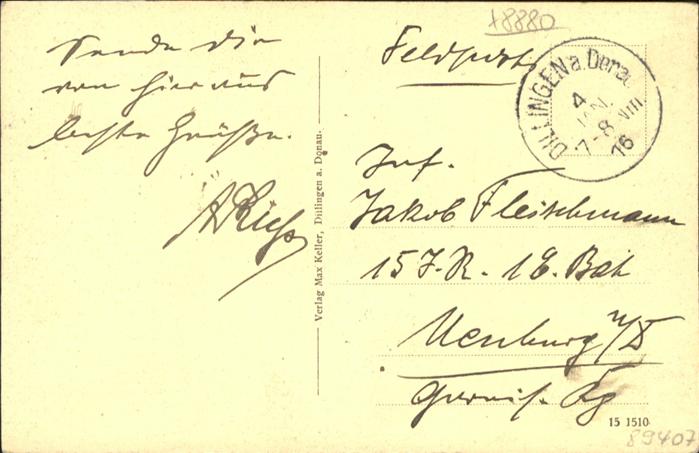 18880
Feldpost
DILLINGEN a. Donau
4 JAN. 16
7-8 VM.
Sende dir
von hier aus
beste Grüße.
Verlag Max Keller, Dillingen a. Donau.
Inf.
Jakob Fleischmann
15 J. R. 1 E. Bat
Neuburg a/D
15 1510
89407